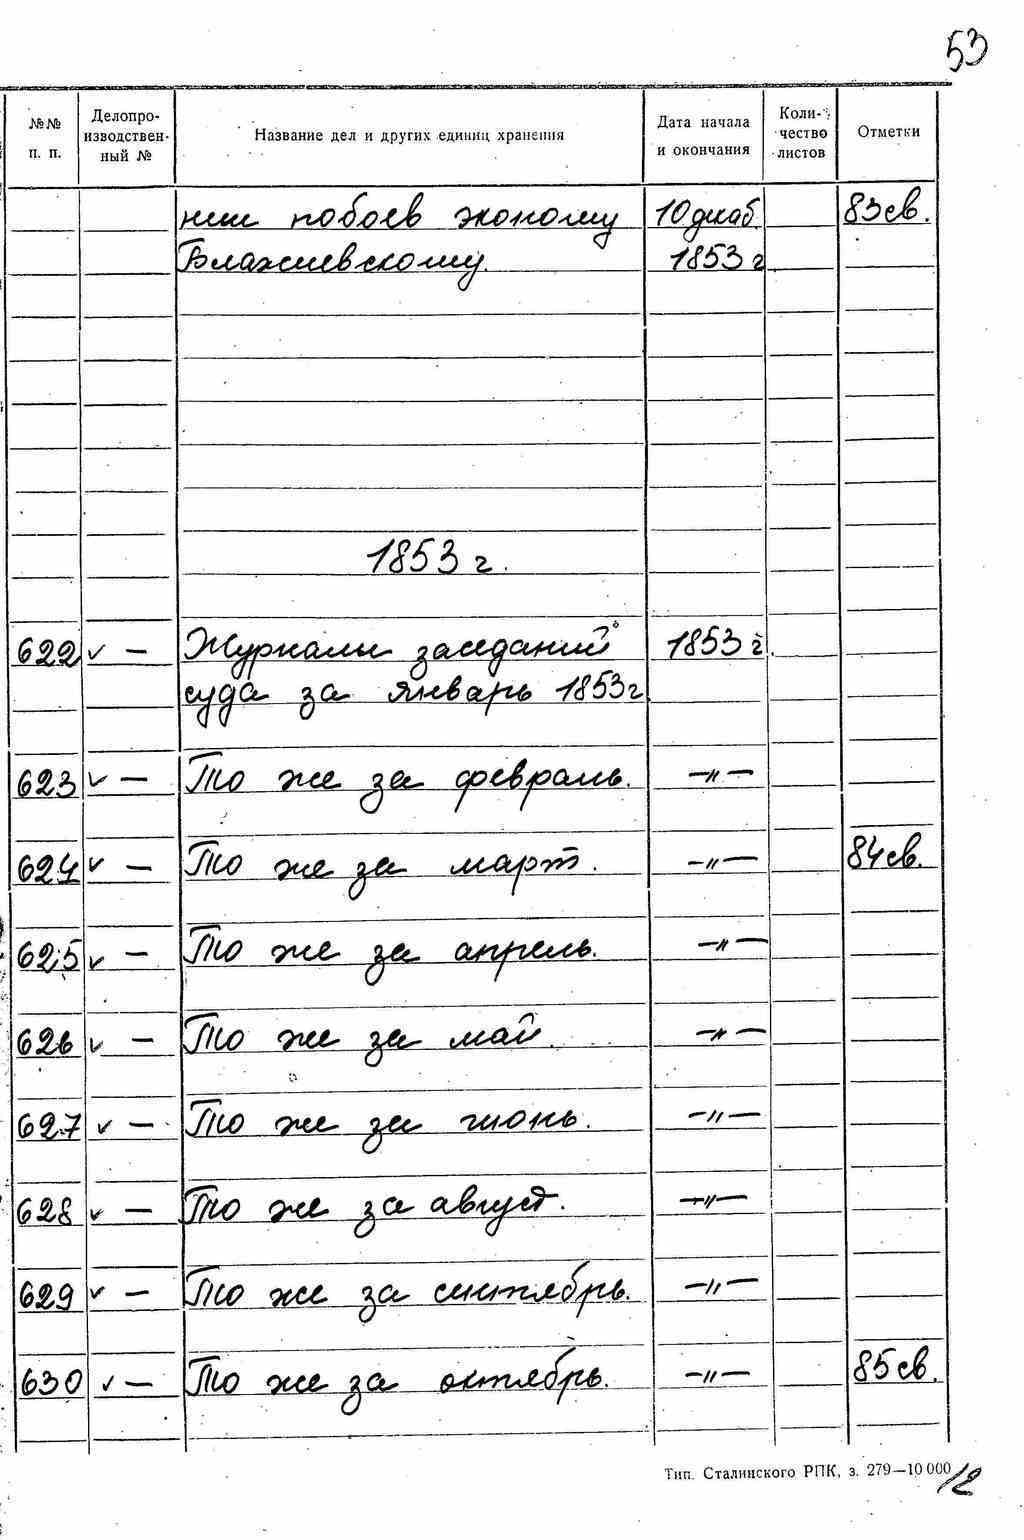 53
№№ п. п. Делопроизводствен-ный № Название дел и других единиц хранения Дата начала и окончания Коли-чество листов Отметки
нии побоев эконому 10 декаб. 83 св.
Блажиевскому. 1853 г
1853 г.
622 ✓ — Журналы заседаний 1853 г.
суда за январь 1853 г
623 ✓ — То же за февраль. —"—
624 ✓ — То же за март. —"— 84 св.
625 ✓ — То же за апрель. —"—
626 ✓ — То же за май. —"—
627 ✓ — То же за июнь. —"—
628 ✓ — То же за август. —"—
629 ✓ — То же за сентябрь. —"—
630 ✓ — То же за октябрь. —"— 85 св.
Тип. Сталинского РПК, з. 279—10 000